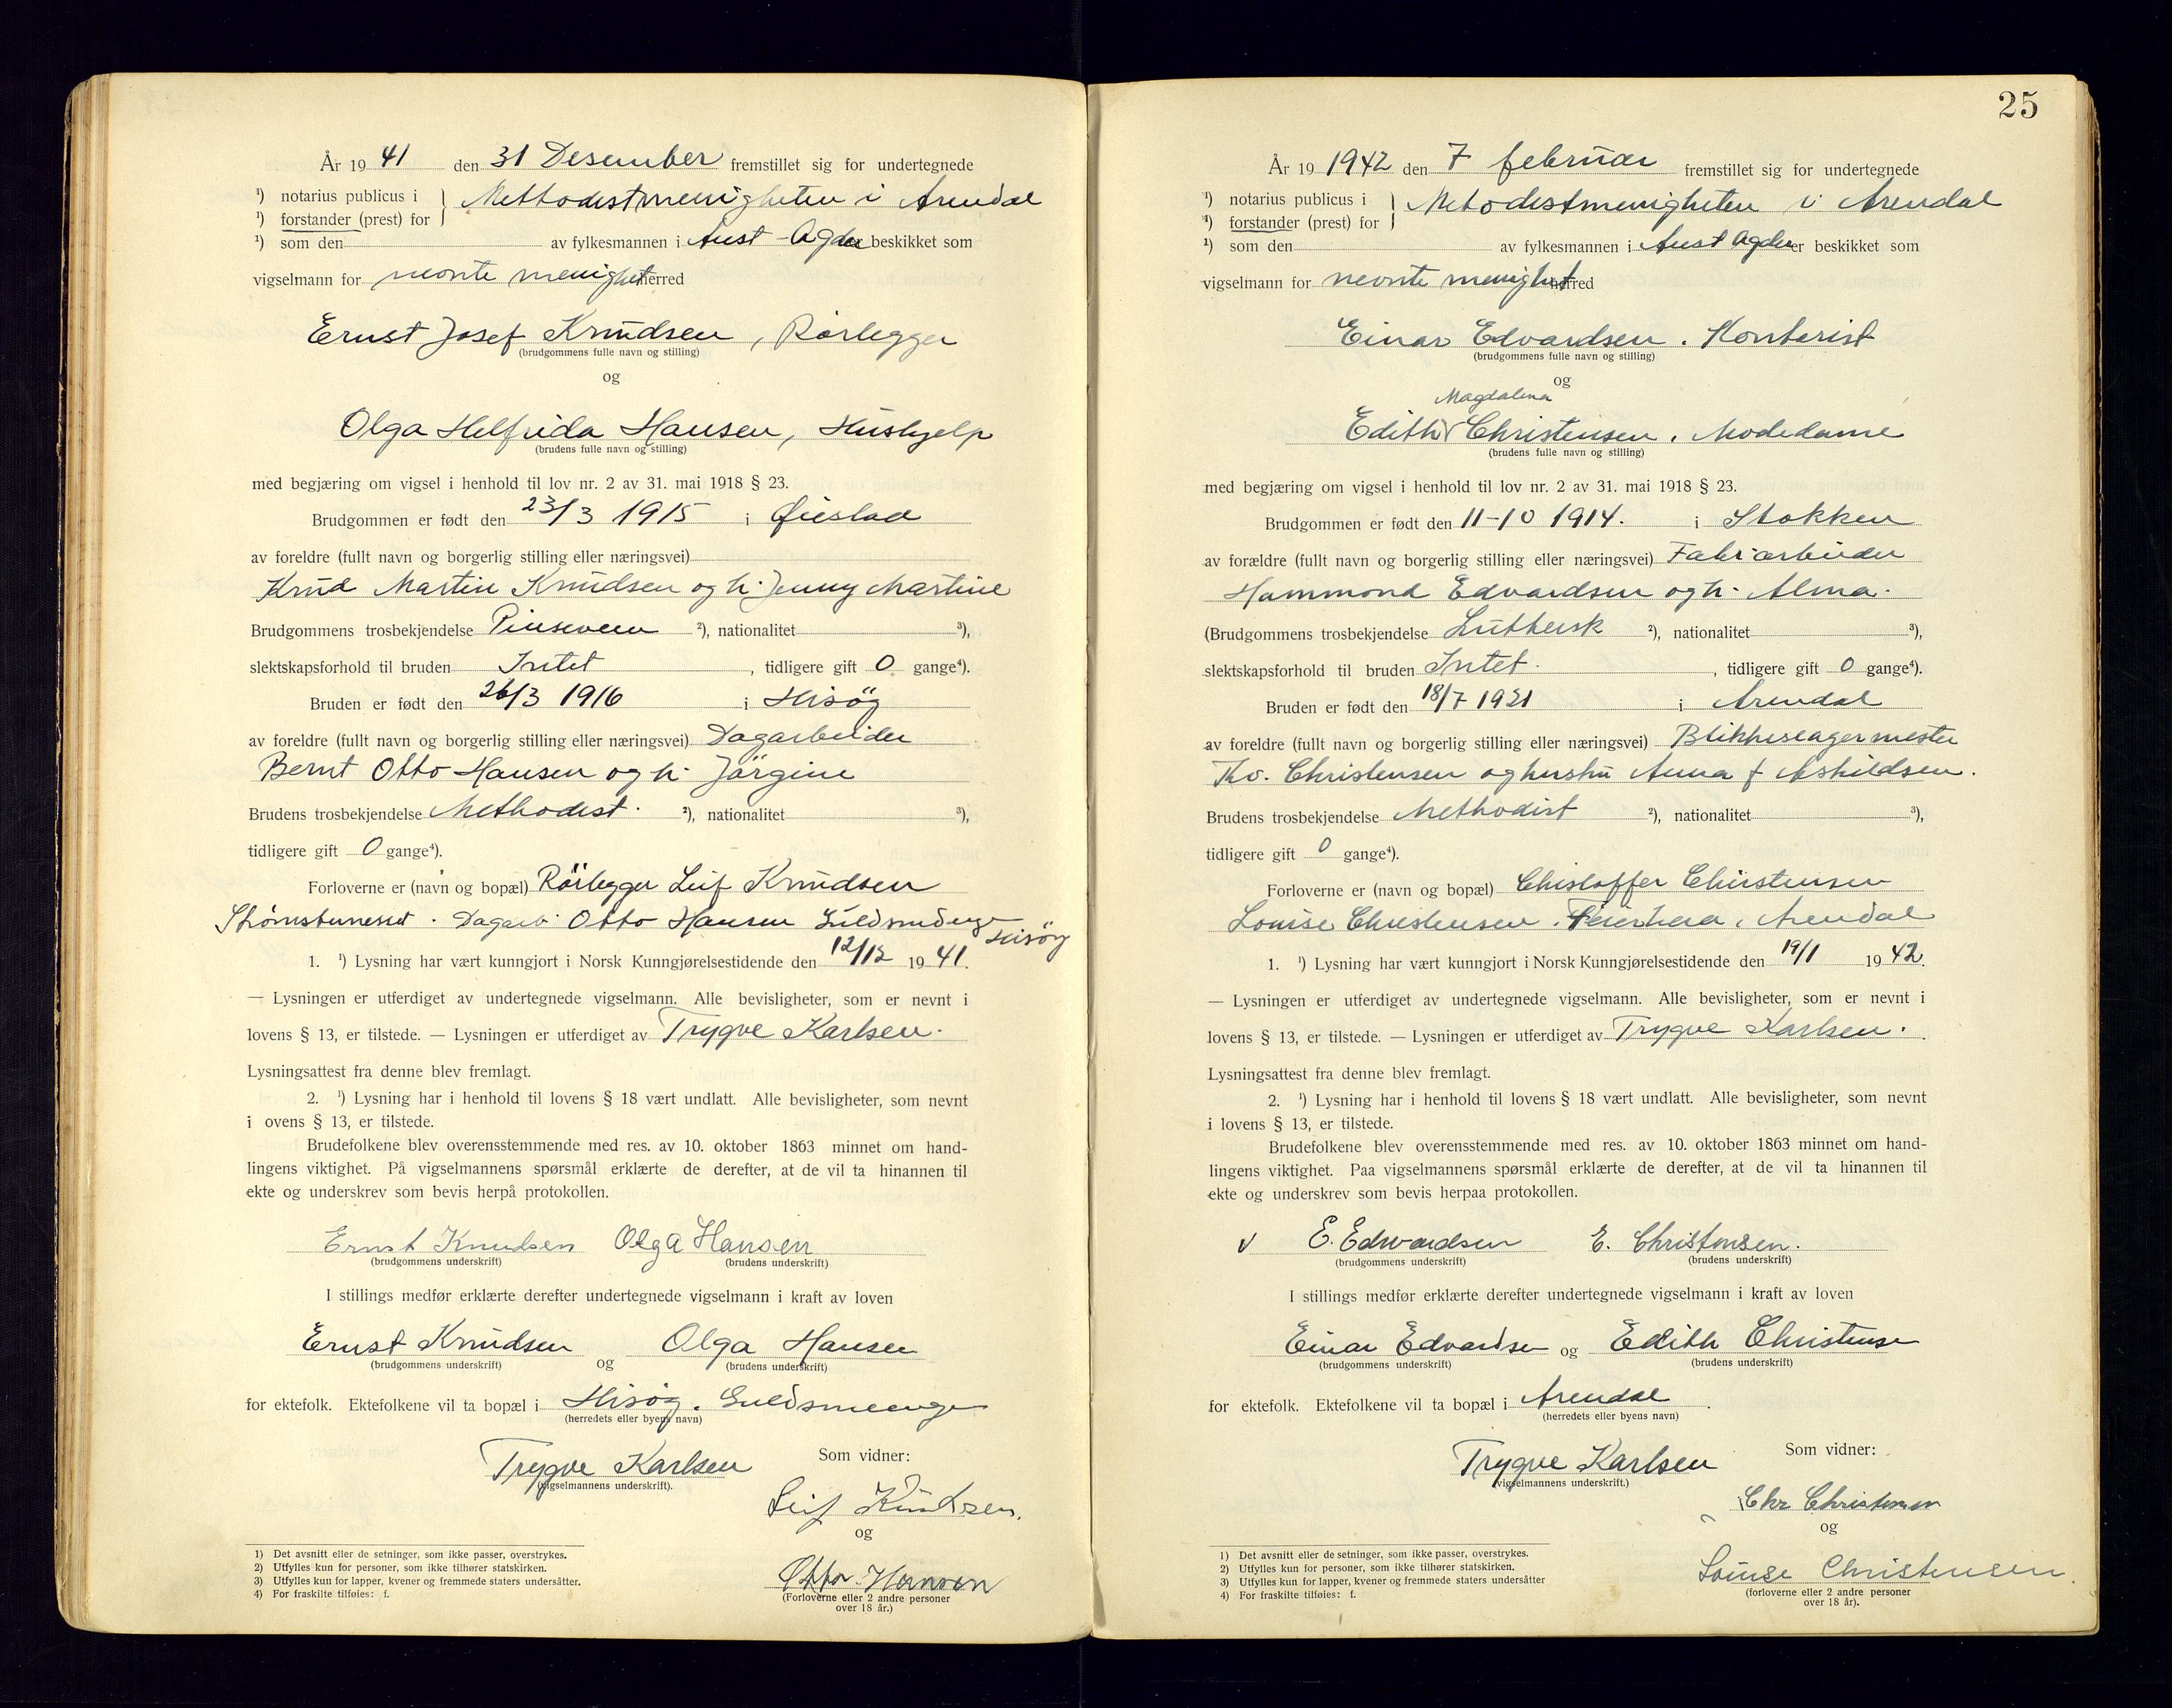 År 19 41 den 31 Desember fremstillet sig for undertegnede
¹) notarius publicus i } Methodistmenigheten i Arendal
¹) forstander (prest) for
¹) som den av fylkesmannen i Aust-Agder beskikket som
vigselmann for nevnte menighet herred
Ernst Josef Knudsen, Rørlegger
(brudgommens fulle navn og stilling)
og
Olga Helfrida Hansen, Hushjelp
(brudens fulle navn og stilling)
med begjæring om vigsel i henhold til lov nr. 2 av 31. mai 1918 § 23.
Brudgommen er født den 23/3 1915 i Øiestad
av foreldre (fullt navn og borgerlig stilling eller næringsvei)
Knud Martin Knudsen og h. Jenny Martine
Brudgommens trosbekjendelse Pinseven ²), nationalitet ³),
slektskapsforhold til bruden Intet, tidligere gift 0 gange⁴).
Bruden er født den 26/3 1916 i Hisöy
av foreldre (fullt navn og borgerlig stilling eller næringsvei) Dagarbeider
Bernt Otto Hansen og h. Jörgine
Brudens trosbekjendelse Methodist. ²), nationalitet ³),
tidligere gift 0 gange⁴).
Forloverne er (navn og bopæl) Rörlegger Leif Knudsen
Dagarb. Otto Hansen
Hisöy
1. ¹) Lysning har vært kunngjort i Norsk Kunngjørelsestidende den 12/12 19 41.
— Lysningen er utferdiget av undertegnede vigselmann. Alle bevisligheter, som er nevnt i
lovens § 13, er tilstede. — Lysningen er utferdiget av Trygve Karlsen.
Lysningsattest fra denne blev fremlagt.
2. ¹) Lysning har i henhold til lovens § 18 vært undlatt. Alle bevisligheter, som nevnt
i ovens § 13, er tilstede.
Brudefolkene blev overensstemmende med res. av 10. oktober 1863 minnet om hand-
lingens viktighet. På vigselmannens spørsmål erklærte de derefter, at de vil ta hinannen til
ekte og underskrev som bevis herpå protokollen.
Ernst Knudsen Olga Hansen
(brudgommens underskrift) (brudens underskrift)
I stillings medfør erklærte derefter undertegnede vigselmann i kraft av loven
Ernst Knudsen og Olga Hansen
(brudgommens underskrift) (brudens underskrift)
for ektefolk. Ektefolkene vil ta bopæl i Hisöy.
(herredets eller byens navn)
Trygve Karlsen Som vidner:
(vigselmannens underskrift).
Leif Knudsen.
og
Otto Hansen
(Forloverne eller 2 andre personer
over 18 år.)
1) Det avsnitt eller de setninger, som ikke passer, overstrykes.
2) Utfylles kun for personer, som ikke tilhører statskirken.
3) Utfylles kun for lapper, kvener og fremmede staters undersåtter.
4) For fraskilte tilføies: f.
25
År 19 1942 den 7 februar fremstillet sig for undertegnede
¹) notarius publicus i } Metodistmenigheten i Arendal
¹) forstander (prest) for
¹) som den av fylkesmannen i Aust Agder er beskikket som
vigselmann for nevnte menighet herred
Einar Edvardsen. Kontorist
(brudgommens fulle navn og stilling)
og
Magdalena
Edith Christensen. Modedame
(brudens fulle navn og stilling)
med begjæring om vigsel i henhold til lov nr. 2 av 31. mai 1918 § 23.
Brudgommen er født den 11-10 1914. i Stokken
av forældre (fullt navn og borgerlig stilling eller næringsvei) Fabr.arbeider
Hammond Edvardsen og h. Alma.
(Brudgommens trosbekjendelse Luthersk ²), nationalitet ³),
slektskapsforhold til bruden Intet., tidligere gift 0 gange⁴).
Bruden er født den 18/7 1921 i Arendal
av foreldre (fullt navn og borgerlig stilling eller næringsvei) Blikkeslagermester
Christensen og hustru Anna f Askildsen.
Brudens trosbekjendelse Methodist ²), nationalitet ³),
tidligere gift 0 gange⁴).
Forloverne er (navn og bopæl) Christoffer Christensen
Louise Christensen. Arendal
1. ¹) Lysning har vært kunngjort i Norsk Kunngjørelsestidende den 19/1 19 42.
— Lysningen er utferdiget av undertegnede vigselmann. Alle bevisligheter, som er nevnt i
lovens § 13, er tilstede. — Lysningen er utferdiget av Trygve Karlsen.
Lysningsattest fra denne blev fremlagt.
2. ¹) Lysning har i henhold til lovens § 18 vært undlatt. Alle bevisligheter, som nevnt
i lovens § 13, er tilstede.
Brudefolkene blev overensstemmende med res. av 10. oktober 1863 minnet om hand-
lingens viktighet. Paa vigselmannens spørsmål erklærte de derefter, at de vil ta hinannen til
ekte og underskrev som bevis herpaa protokollen.
v E. Edvardsen E. Christensen.
(brudgommens underskrift) (brudens underskrift)
I stillings medfør erklærte derefter undertegnede vigselmann i kraft av loven
Einar Edvardsen og Edith Christensen
(brudgommens underskrift) (brudens underskrift)
for ektefolk. Ektefolkene vil ta bopæl i Arendal.
(herredets eller byens navn)
Trygve Karlsen Som vidner:
(vigselmannens underskrift.)
Chr Christensen
og
Louise Christensen.
(forloverne eller 2 andre personer
over 18 år).
1) Det avsnitt eller de setninger, som ikke passer, overstrykes.
2) Utfylles kun for personer, som ikke tilhører statskirken.
3) Utfylles kun for lapper, kvener og fremmede staters undersåtter
4) For fraskilte tilføies: f.